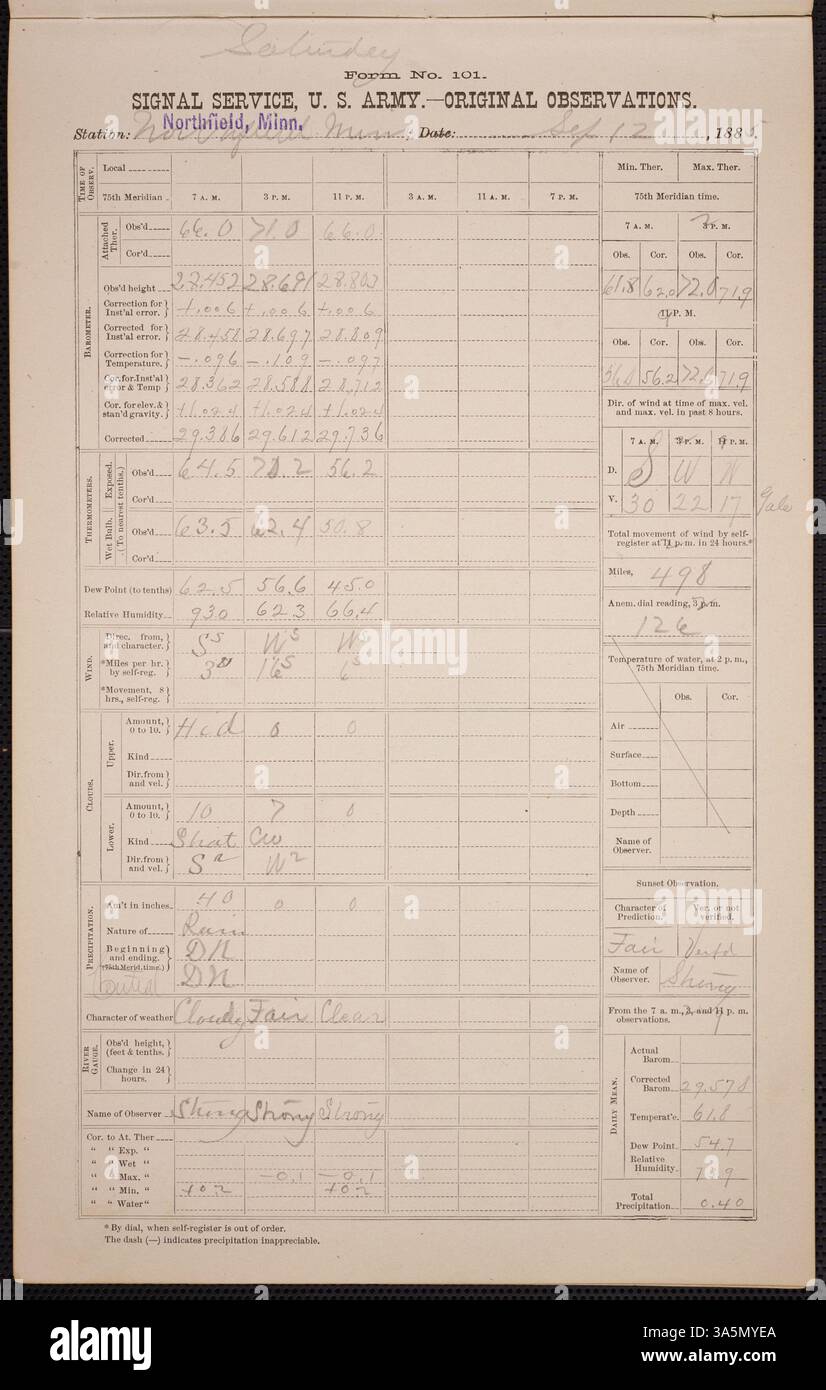 Saturday
Form No. 101.
SIGNAL SERVICE, U. S. ARMY.—ORIGINAL OBSERVATIONS.
Northfield, Minn.
Station: Northfield Minn; Date: Sep 12, 1885.
TIME OF OBSERV.
Local
75th Meridian 7 A. M. 3 P. M. 11 P. M. 3 A. M. 11 A. M. 7 P. M.
BAROMETER.
Attached Ther.
Obs'd 66.0 71.0 66.0
Cor'd
Obs'd height 28.452 28.691 28.803
Correction for Inst'al error. +.006 +.006 +.006
Corrected for Inst'al error. 28.458 28.697 28.809
Correction for Temperature. -.096 -.109 -.097
Cor. for Inst'al error & Temp 28.362 28.588 28.712
Cor. for elev. & stan'd gravity. +1.024 +1.024 +1.024
Corrected 29.386 29.612 29.736
THERMOMETERS.
(To nearest tenths.)
Exposed.
Obs'd 64.5 70.2 56.2
Cor'd
Wet Bulb.
Obs'd 63.5 62.4 50.8
Cor'd
Dew Point (to tenths) 62.5 56.6 45.0
Relative Humidity 93.0 62.3 66.4
WIND.
Direc. from, and character. S5 W5 W5
*Miles per hr. by self-reg. 16 6
*Movement, 8 hrs., self-reg.
CLOUDS.
Upper.
Amount, 0 to 10. Hid 0 0
Kind
Dir. from and vel.
Lower.
Amount, 0 to 10. 10 7 0
Kind Strat Cu
Dir. from and vel. S W2
PRECIPITATION.
Am't in inches 40 0 0
Nature of Rain
Beginning and ending. (75th Merid. time.) DN
DN
Character of weather Cloudy Fair Clear
RIVER GAUGE.
Obs'd height, (feet & tenths.
Change in 24 hours.
Name of Observer Strong Strong Strong
Cor. to At. Ther
" " Exp. "
" " Wet "
" " Max. " -0.1 -0.1
" " Min. " +0.2 +0.2
" " Water "
* By dial, when self-register is out of order.
The dash (—) indicates precipitation inappreciable.
Min. Ther. Max. Ther.
75th Meridian time.
7 A. M. 3 P. M.
Obs. Cor. Obs. Cor.
61.8 62.0 72.0 71.9
11 P. M.
Obs. Cor. Obs. Cor.
56.0 56.2 72.0 71.9
Dir. of wind at time of max. vel. and max. vel. in past 8 hours.
7 A. M. 3 P. M. 11 P. M.
D. S W W
V. 30 22 17 Gale
Total movement of wind by self-register at 11 p. m. in 24 hours.*
Miles, 498
Anem. dial reading, 3 p. m.
126
Temperature of water, at 2 p. m., 75th Meridian time.
Obs. Cor.
Air
Surface
Bottom
Depth
Name of Observer.
Sunset Observation.
Character of Prediction. Ver. or not verified.
Fair Verfd
Name of Observer. Strong
From the 7 a. m., 3, and 11 p. m. observations.
DAILY MEAN.
Actual Barom.
Corrected Barom. 29.578
Temperat'e. 61.8
Dew Point. 54.7
Relative Humidity. 73.9
Total Precipitation. 0.40
alamy
alamy
Image ID: 3A5MYEA
www.alamy.com